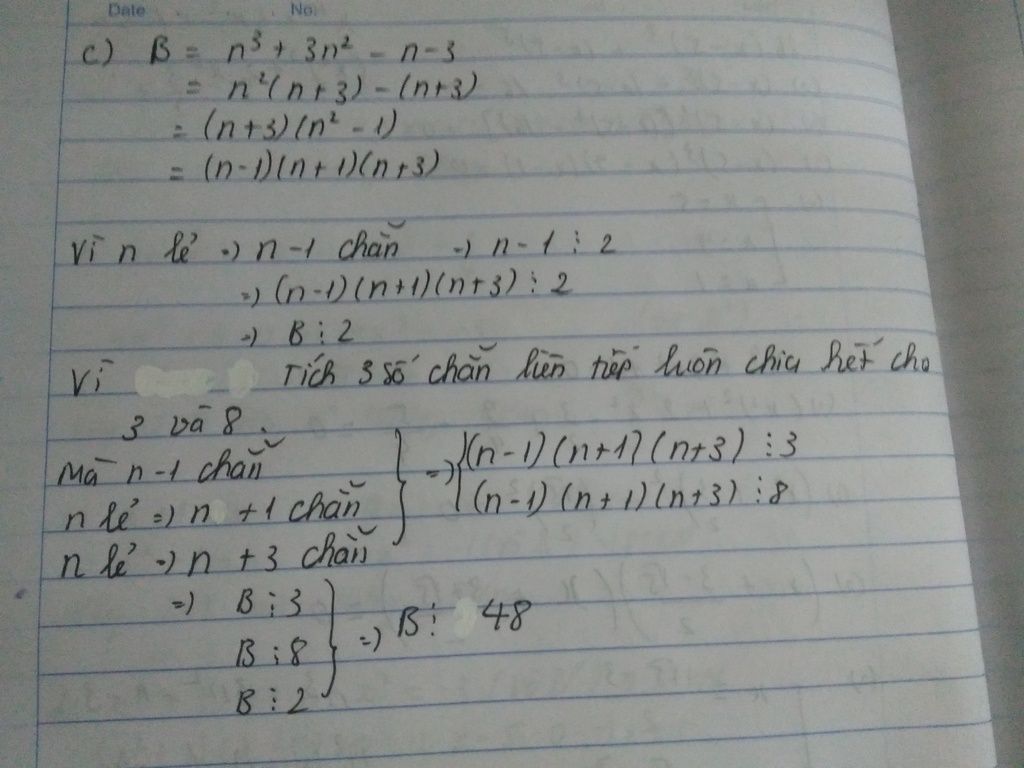 Date No.
c) B = n³ + 3n² - n - 3
= n²(n+3) - (n+3)
= (n+3)(n² - 1)
= (n-1)(n+1)(n+3)
Vì n lẻ => n - 1 chẵn => n - 1 ⋮ 2
=> (n-1)(n+1)(n+3) ⋮ 2
=> B ⋮ 2
Vì Tích 3 số chẵn liên tiếp luôn chia hết cho
3 và 8.
Mà n - 1 chẵn
n lẻ => n + 1 chẵn
n lẻ => n + 3 chẵn
=> (n-1)(n+1)(n+3) ⋮ 3
(n-1)(n+1)(n+3) ⋮ 8
=> B ⋮ 3
B ⋮ 8
B ⋮ 2
=> B ⋮ 48